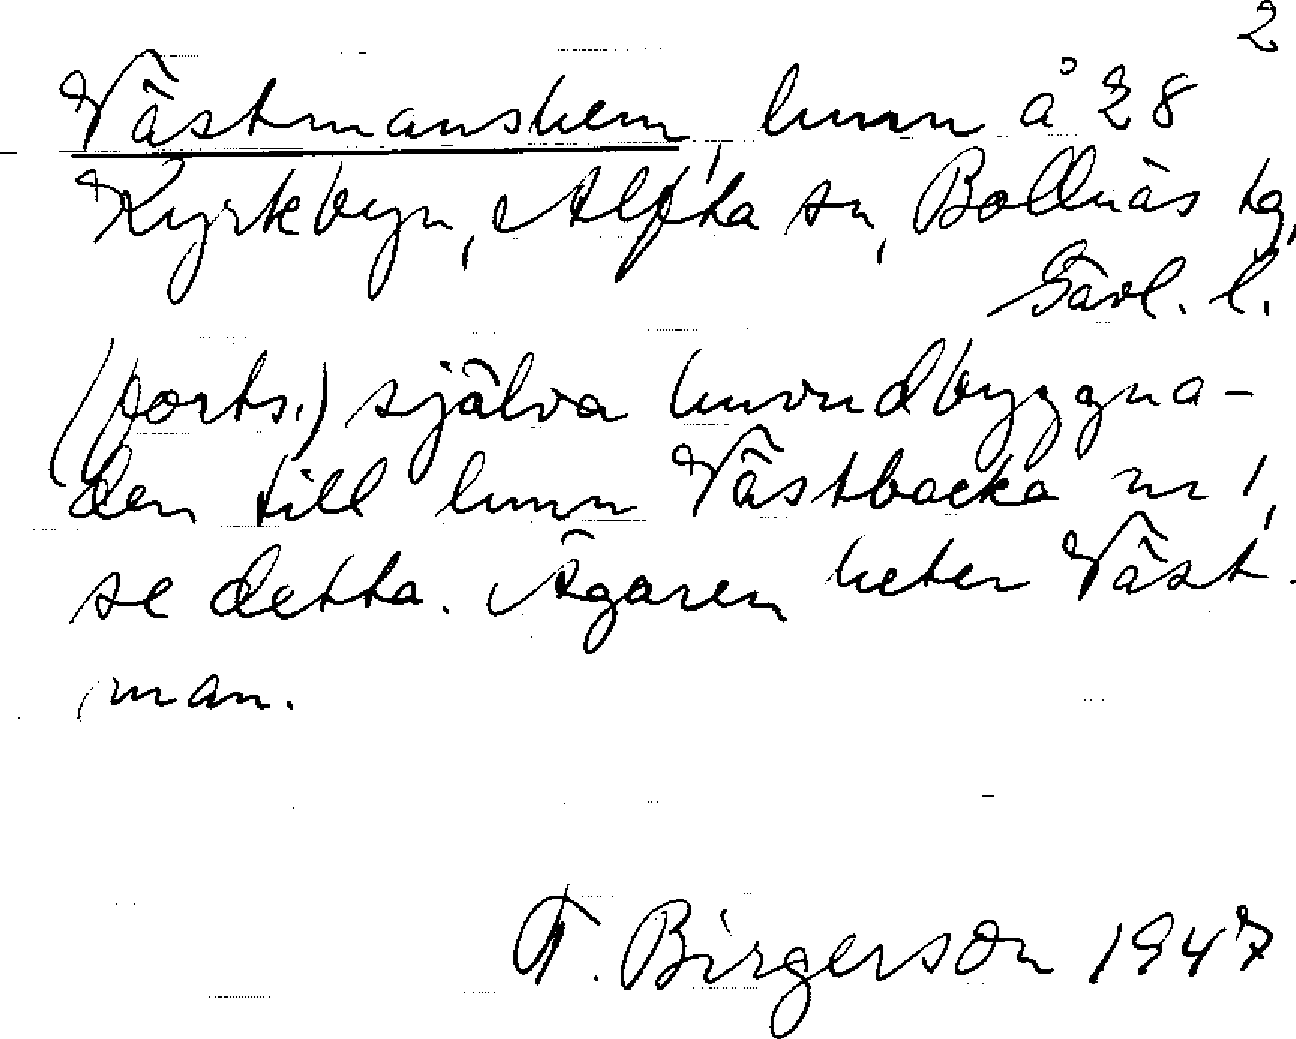 2
Västmanshem, hmn å 28
Kyrkbyn, Alfta sn, Bollnäs tg,
Gävl. l.
(forts.) själva huvudbyggna-
den till hmn Västbacka nr 1,
se detta. Ägaren heter Väst-
man.
T. Birgerson 1947